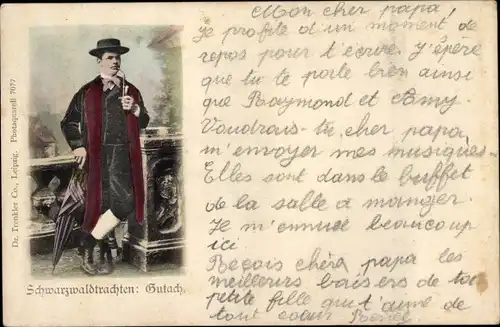 Mon cher papa!
Je profite d'un moment de
repos pour t'ecrire. J'éspère
que tu te porte bien ainsi
que Raymond et Amy.
Voudrais-tu, cher papa
m'envoyer mes musiques-
Elles sont dans le buffet
de la salle à manger.
Je m'ennuie beaucoup
ici
Reçois chère papa les
meilleurs baisers de ta
petite fille qui t'aime de
tout coeur
Dr. Trenkler Co., Leipzig. Photaquarell 7077
Schwarzwaldtrachten: Gutach.